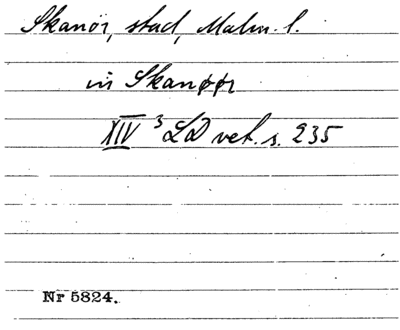 Skanör, stad, Malm. l.
in Skanøør
XIV ³ LD vet. s. 235
Nr 5824.